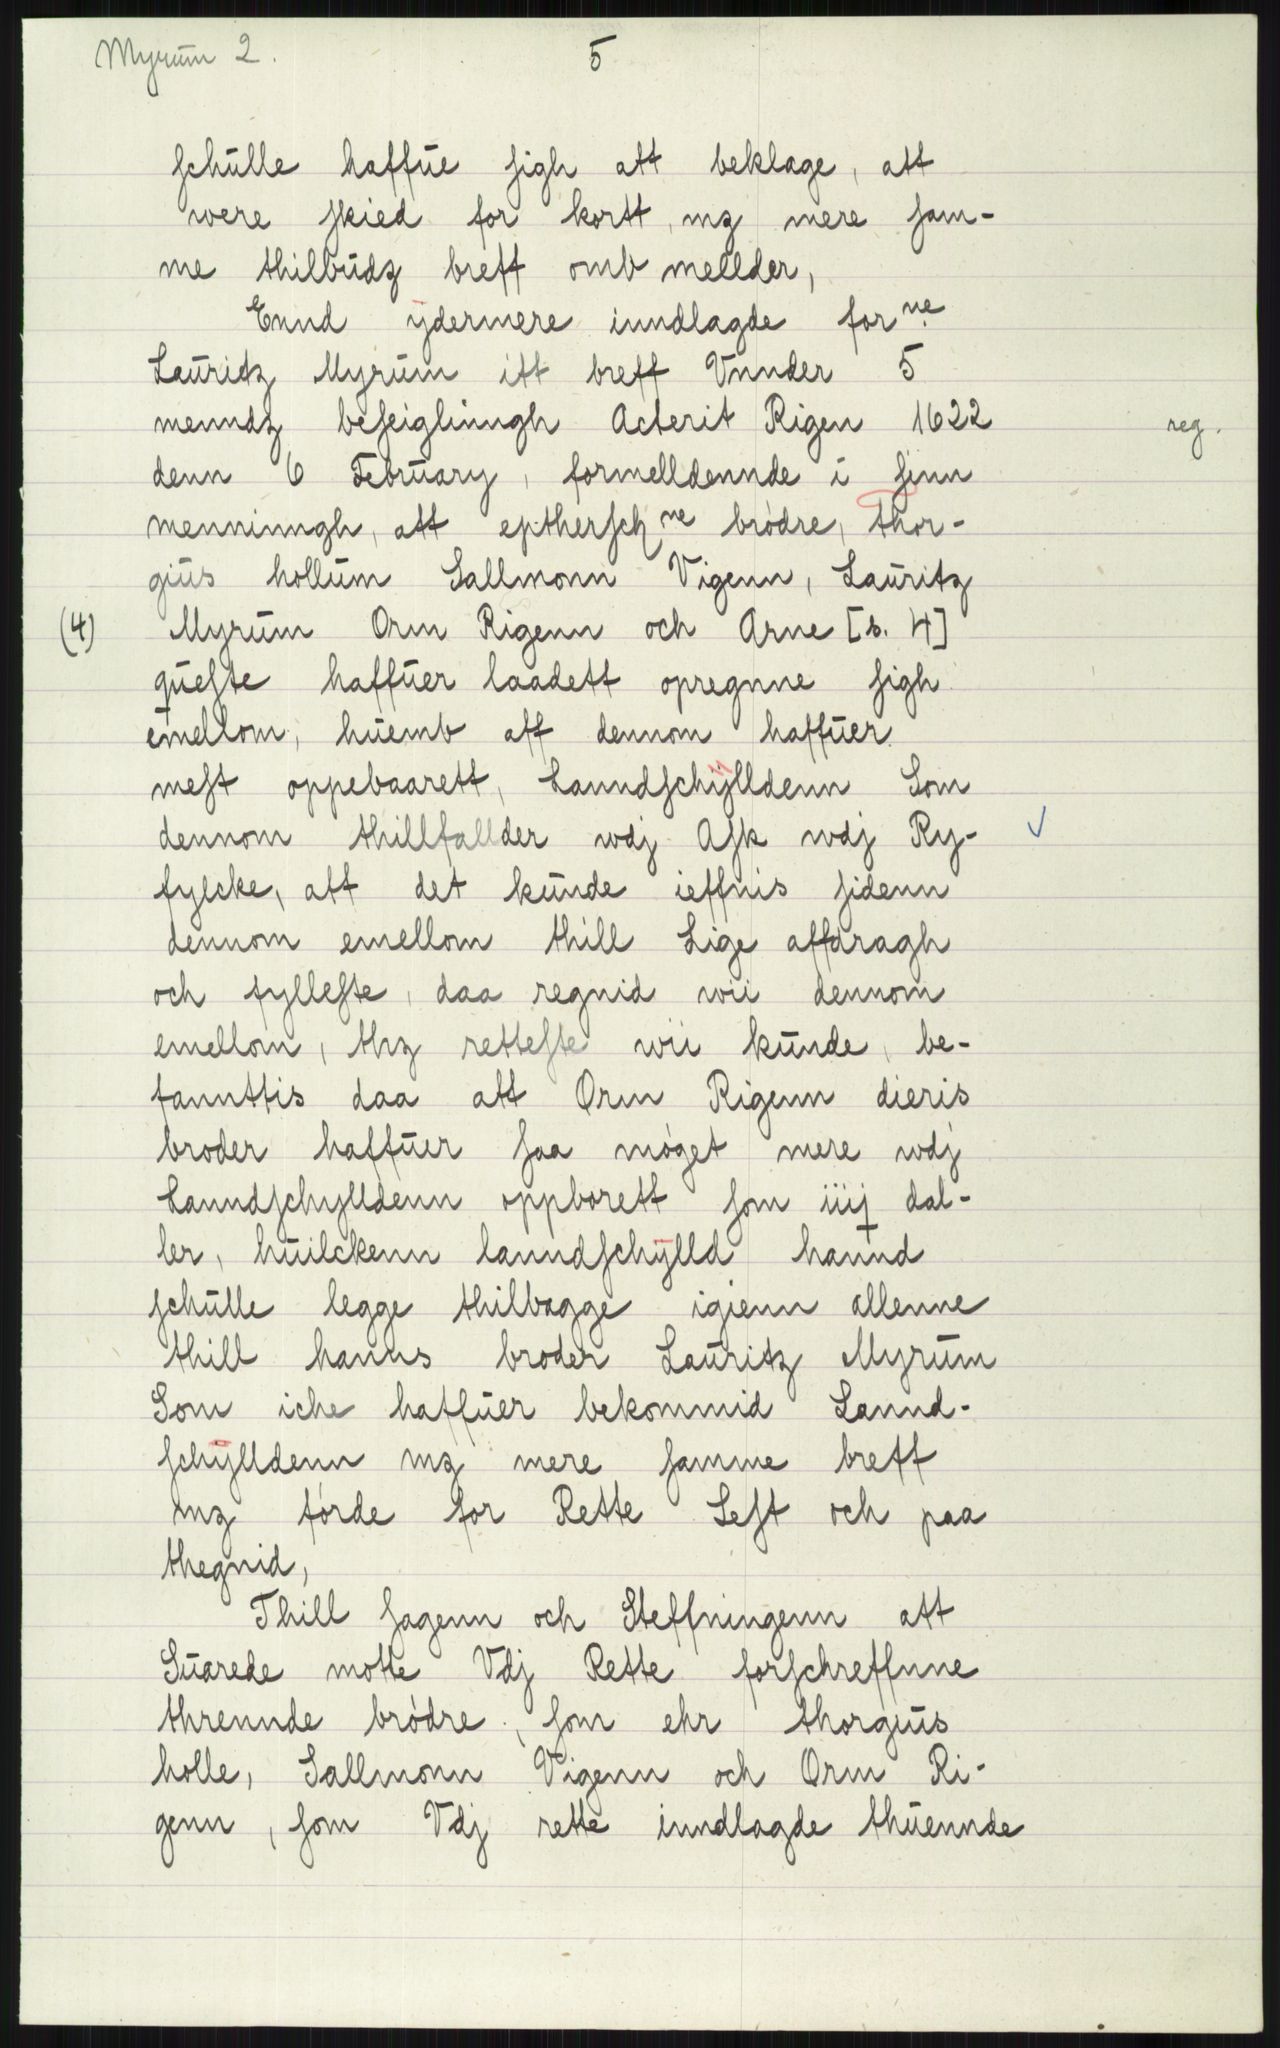 Myrum 2.
5
schulle haffue sigh att beklage, att
were skied for kortt, mz mere sam-
me thilbudz breff omb mellder,
Ennd ÿdermere inndlagde for ne
Lauritz Myrum itt breff Vnnder 5
menndz beseiglinngh Acterit Rigen 1622
reg.
denn 6 February, formelldennde i sinn
menninngh, att eptersch ne brødre, thor-
gius hollum Sallmonn Vigenn, Lauritz
(4)
Myrum Orm Rigenn och Arne [s. 4]
queste haffuer laadett opregnne sigh
emellom, huemb aff dennom haffuer
mest oppebaarett, Lanndschÿlldenn Som
dennom thillfallder wdj Ask wdj Ry-
fylcke, att det kunde ieffnis sidenn
dennom emellom thill Lige affdragh
och fylleste, daa regnid wii dennom
emellom, thz retteste wii kunde, be-
fannttis daa att Orm Rigenn dieris
broder haffuer saa møget mere wdj
Lanndschylldenn oppborett som iiij dal-
ler, huilckenn lanndschÿlld hannd
schulle legge thilbagge igienn allenne
thill hanns broder Lauritz Myrum
Som iche haffuer bekommid Lannd-
schÿlldenn mz mere samme breff
mz førde for Rette Lest och paa
thegnid,
Thill sagenn och Steffningenn att
Suarede motte Vdj Rette forschreffnne
thrennde brødre, som ehr thorgius
holle, Sallmonn Vigenn och Orm Ri-
genn, som Vdj rette inndlagde thuennde